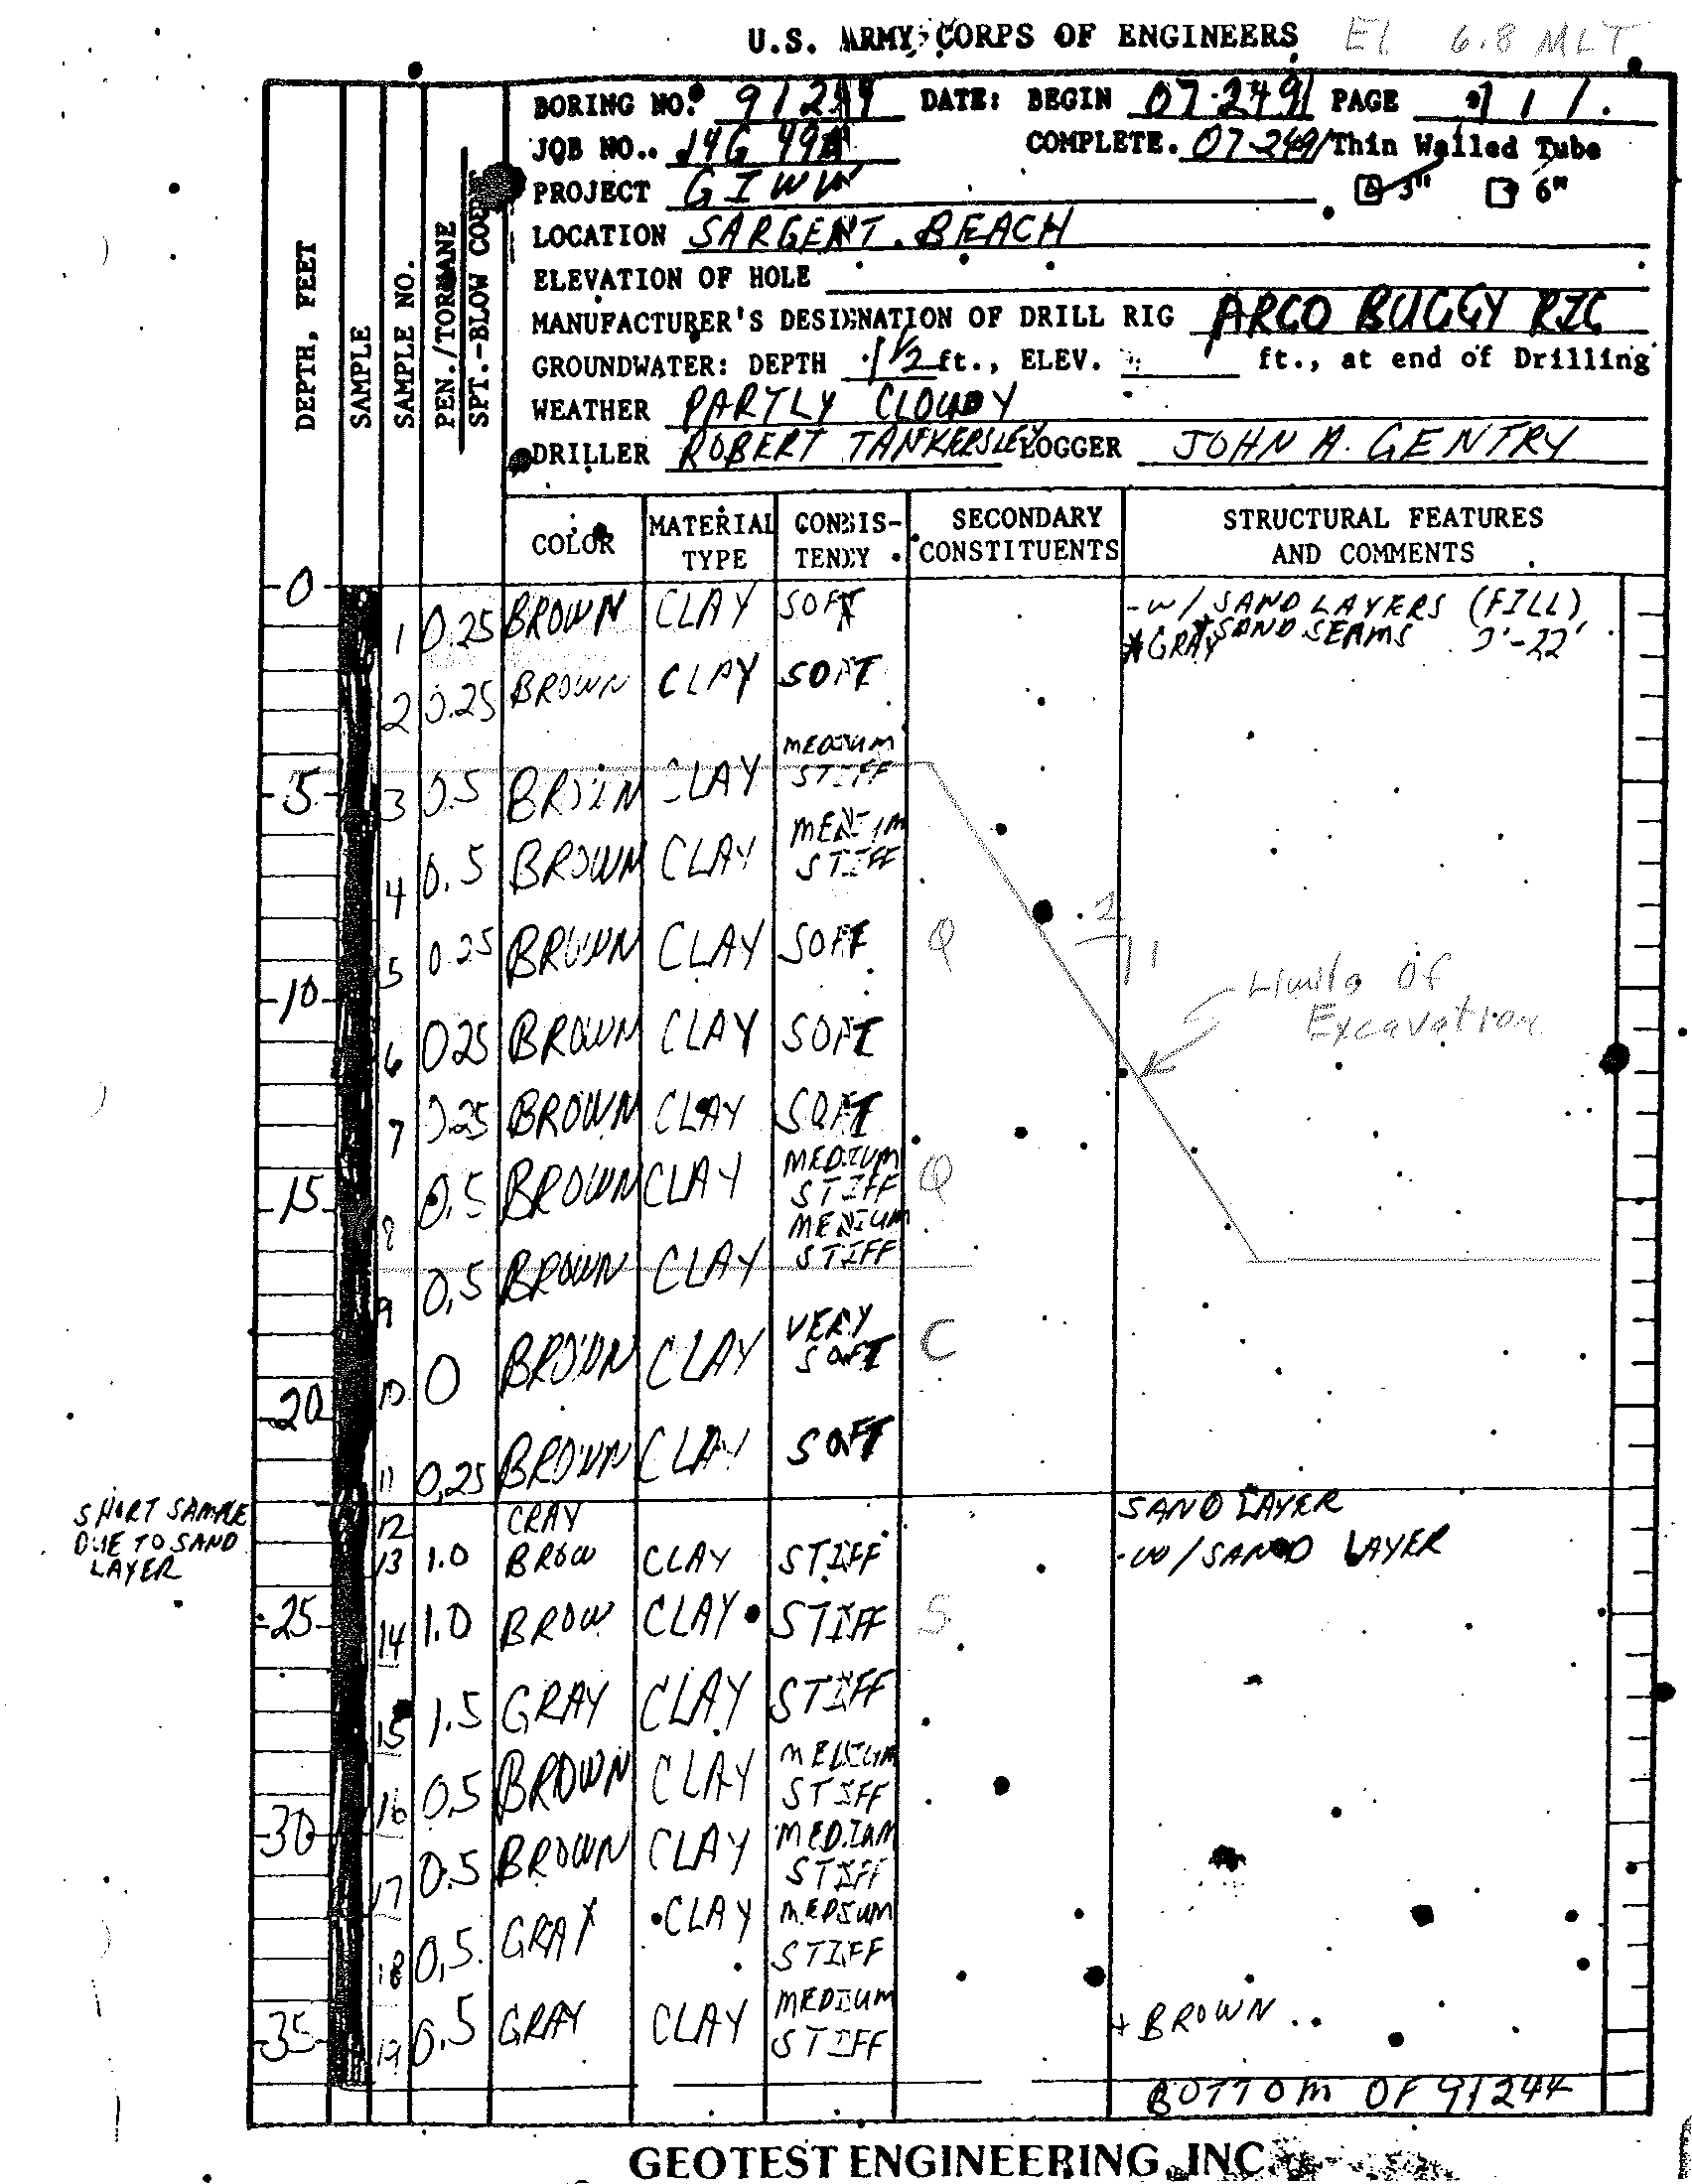 U.S. ARMY CORPS OF ENGINEERS El 6.8 MLT
BORING NO. DATE: BEGIN 07-24-91 PAGE 1 / 1.
JOB NO. COMPLETE. 07-2491 Thin Walled Tube
PROJECT GIWW 3" 6"
LOCATION SARGENT BEACH
ELEVATION OF HOLE
MANUFACTURER'S DESIGNATION OF DRILL RIG ARGO BUGGY RIG
GROUNDWATER: DEPTH 1 1/2 ft., ELEV. ft., at end of Drilling
WEATHER PARTLY CLOUDY
DRILLER ROBERT TANKERSLEY LOGGER JOHN A. GENTRY
DEPTH, FEET
SAMPLE
SAMPLE NO.
PEN./TORVANE
SPT.-BLOW COUNT
COLOR MATERIAL TYPE CONSISTENCY SECONDARY CONSTITUENTS STRUCTURAL FEATURES AND COMMENTS
0
1 0.25 BROWN CLAY SOFT -W/ SAND LAYERS (FILL)
*GRAY SAND SEAMS 2'-22'
2 0.25 BROWN CLAY SOFT
5
3 0.5 BROWN CLAY MEDIUM STIFF
4 0.5 BROWN CLAY MEDIUM STIFF
5 0.25 BROWN CLAY SOFT Q
2
1
Limits of
Excavation
10
6 0.25 BROWN CLAY SOFT
7 0.25 BROWN CLAY SOFT
15
8 0.5 BROWN CLAY MEDIUM STIFF Q
9 0.5 BROWN CLAY MEDIUM STIFF
10 0 BROWN CLAY VERY SOFT C
20
11 0.25 BROWN CLAY SOFT
SHORT SAMPLE
DUE TO SAND
LAYER
12 GRAY SAND LAYER
13 1.0 BROW CLAY STIFF -W/SAND LAYER
25
14 1.0 BROW CLAY STIFF S
15 1.5 GRAY CLAY STIFF
16 0.5 BROWN CLAY MEDIUM STIFF
30
17 0.5 BROWN CLAY MEDIUM STIFF
18 0.5 GRAY CLAY MEDIUM STIFF
35
19 0.5 GRAY CLAY MEDIUM STIFF + BROWN
BOTTOM OF 91244
GEOTEST ENGINEERING, INC.